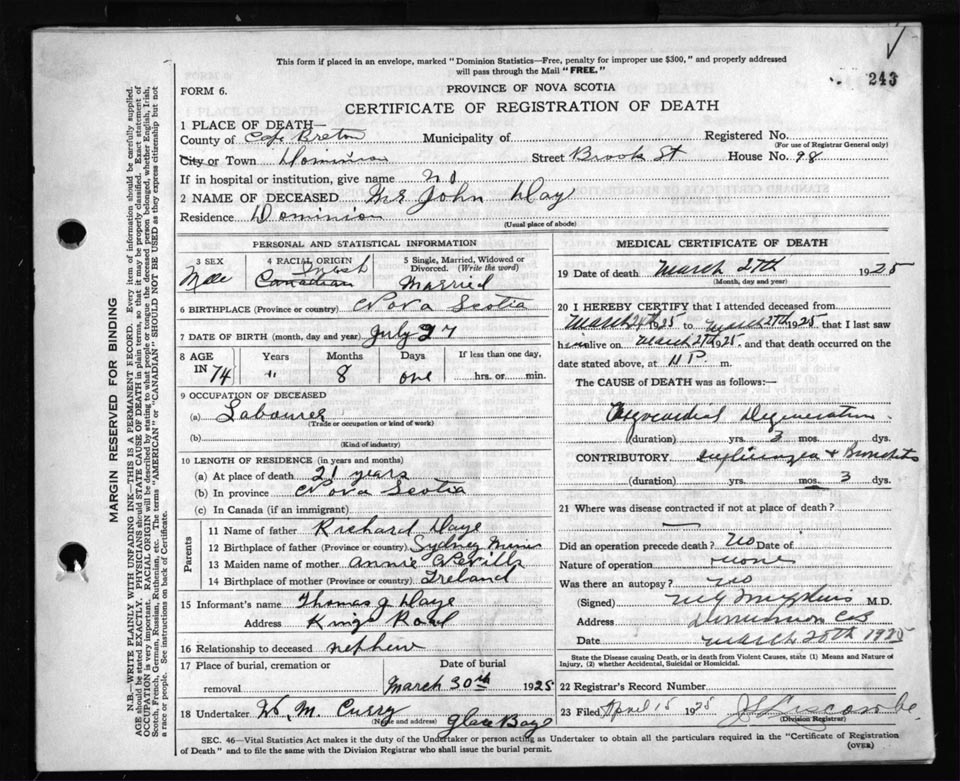 This form if placed in an envelope, marked "Dominion Statistics—Free, penalty for improper use $300," and properly addressed
will pass through the Mail "FREE."
243
FORM 6.
PROVINCE OF NOVA SCOTIA
CERTIFICATE OF REGISTRATION OF DEATH
1 PLACE OF DEATH—
County of Cape Breton Municipality of Registered No.
(For use of Registrar General only)
City or Town Dominion Street Brook St House No. 98
If in hospital or institution, give name
2 NAME OF DECEASED John Day
Residence Dominion
(Usual place of abode)
PERSONAL AND STATISTICAL INFORMATION
3 SEX Male
4 RACIAL ORIGIN Irish Canadian
5 Single, Married, Widowed or Divorced. (Write the word) Married
6 BIRTHPLACE (Province or country) Nova Scotia
7 DATE OF BIRTH (month, day and year) July 27
8 AGE IN 74 Years " Months 8 Days one If less than one day, hrs. or min.
9 OCCUPATION OF DECEASED
(a) Labourer
(Trade or occupation or kind of work)
(b)
(Kind of industry)
10 LENGTH OF RESIDENCE (in years and months)
(a) At place of death 21 years
(b) In province Nova Scotia
(c) In Canada (if an immigrant)
Parents
11 Name of father Richard Daye
12 Birthplace of father (Province or country) Sydney Mines
13 Maiden name of mother Annie
14 Birthplace of mother (Province or country) Ireland
15 Informant's name Thomas J Daye
Address Kings Road
16 Relationship to deceased nephew
17 Place of burial, cremation or removal
Date of burial March 30th 1925
18 Undertaker W. M. Curry
(Name and address) Glace Bay
MEDICAL CERTIFICATE OF DEATH
19 Date of death March 27th 1925
(Month, day and year)
20 I HEREBY CERTIFY that I attended deceased from
March 1925 to March 27th 1925 that I last saw
him alive on March 27th 1925, and that death occurred on
date stated above, at 11 P. m.
The CAUSE of DEATH was as follows:—
Myocardial Degeneration
(duration) yrs. 3 mos. dys.
CONTRIBUTORY Influenza & Bronchitis
(duration) yrs. mos. 3 dys.
21 Where was disease contracted if not at place of death?
Did an operation precede death? No Date of
Nature of operation none
Was there an autopsy? No
(Signed) M.D.
Address Dominion CB
Date March 28th 1925
State the Disease causing Death, or in death from Violent Causes, state (1) Means and Nature of
Injury, (2) whether Accidental, Suicidal or Homicidal.
22 Registrar's Record Number
23 Filed April 15 1925
(Division Registrar)
SEC. 46—Vital Statistics Act makes it the duty of the Undertaker or person acting as Undertaker to obtain all the particulars required in the "Certificate of Registration
of Death" and to file the same with the Division Registrar who shall issue the burial permit.
(OVER)
MARGIN RESERVED FOR BINDING
N.B.—WRITE PLAINLY WITH UNFADING INK—THIS IS A PERMANENT RECORD. Every item of information should be carefully supplied.
AGE should be stated EXACTLY. PHYSICIANS should STATE CAUSE OF DEATH in plain terms, so that it may be properly classified. Exact statement of
OCCUPATION is very important. RACIAL ORIGIN will be described by stating to what people or tongue the deceased person belonged, whether English, Irish,
Scotch, French, German, Russian, Ruthenian, etc. The terms "AMERICAN" or "CANADIAN" SHOULD NOT BE USED as they express citizenship but not
a race or people. See instructions on back of Certificate.